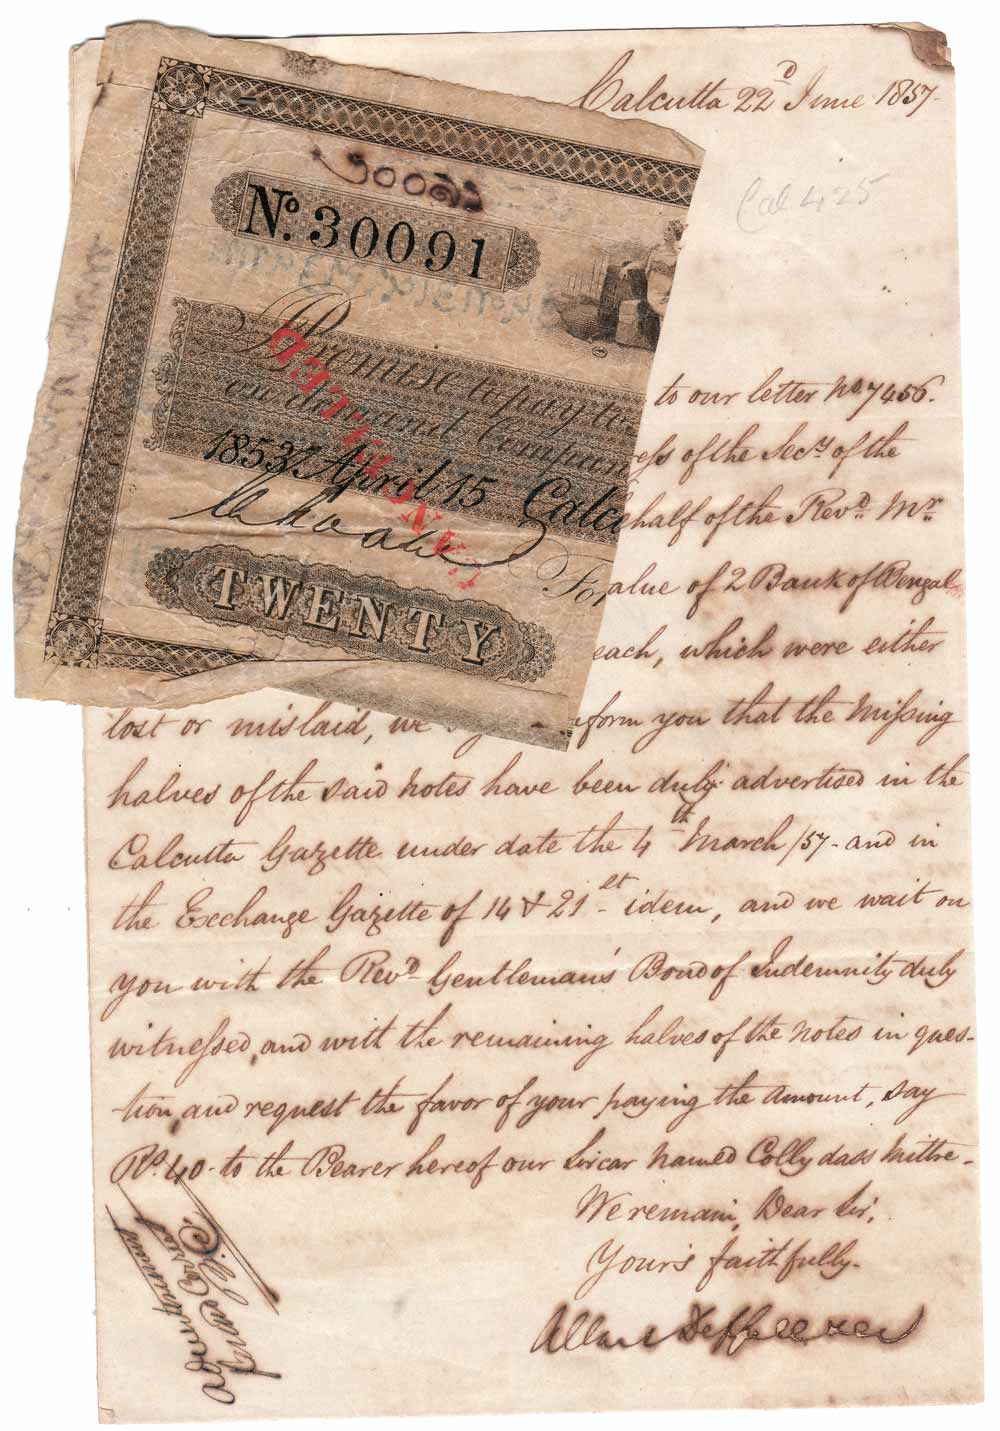 Calcutta 22d June 1857.
Cal 425
৩০০৯১
No. 30091
Promise to pay to
on demand Compan
CANCELLED
1853 April 15 Calc
For
TWENTY
to our letter No. 7456.
ess of the Secy. of the
half of the Revd. Mr.
alue of 2 Bank of Bengal
each, which were either
lost or mislaid, we inform you that the missing
halves of the said notes have been duly advertised in the
Calcutta Gazette under date the 4th March /57 - and in
the Exchange Gazette of 14 & 21st idem, and we wait on
you with the Revd. Gentleman's Bond of Indemnity duly
witnessed, and with the remaining halves of the notes in ques-
tion, and request the favor of your paying the amount, say
Rs. 40 - to the Bearer hereof our Sircar named Colly dass Mittre -
We remain, Dear Sir,
Your's faithfully.
Allan Deffell &Co